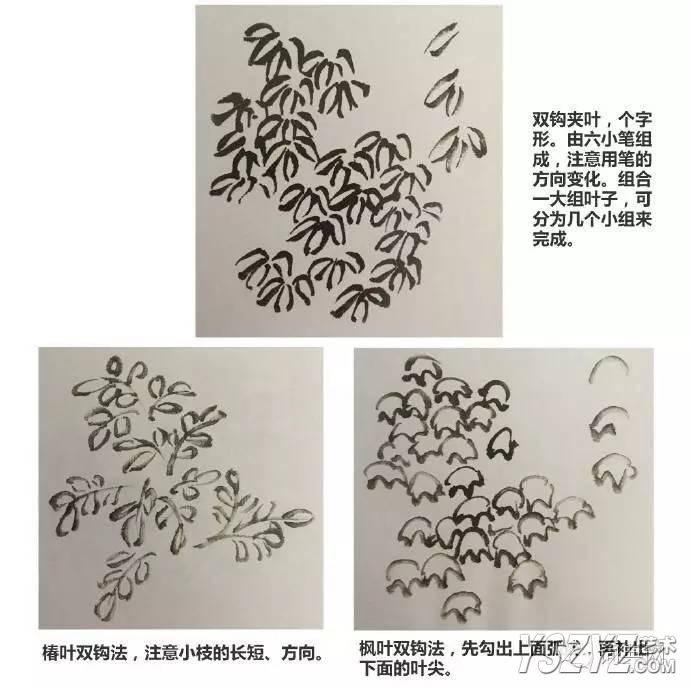 双钩夹叶，个字
形。由六小笔组
成，注意用笔的
方向变化。组合
一大组叶子，可
分为几个小组来
完成。
椿叶双钩法，注意小枝的长短、方向。
枫叶双钩法，先勾出上面弧
下面的叶尖。
YSZYZ